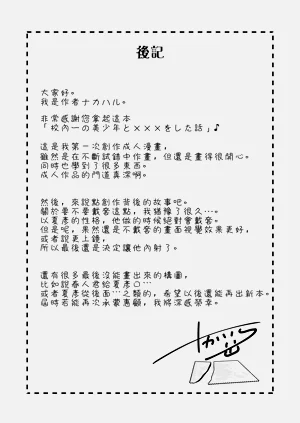 後記
大家好。
我是作者ナカハル。
非常感謝您拿起這本
「校內一の美少年と×××をした話」♪
這是我第一次創作成人漫畫,
雖然是在不斷試錯中作畫，但還是畫得很開心。
同時也學到了很多東西。
成人作品的門道真深啊。
然後，來說點創作背後的故事吧。
關於要不要戴套這點，我猶豫了很久…。
以夏彥的性格，他做的時候絕對會戴套。
但是呢，果然還是不戴套的畫面視覺效果更好，
或者說更上鏡，
所以最後還是決定讓他內射了。
還有很多最後沒能畫出來的構圖，
比如說春人君給夏彥口…
或者夏彥從後面…之類的，希望以後還能再出新本。
屆時若能再次承蒙惠顧，我將深感榮幸。